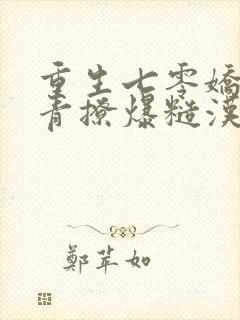 重生七零嬌
青撩爆糙漢
鄭苹如